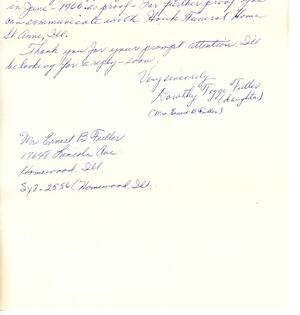 in June - 1960 is proof - For further proof you
can communicate with Houk Funeral Home
St Anne, Ill.
Thank you for your prompt attention. I'll
be looking for a reply - soon.
Very sincerely
Dorothy Fuller
(daughter)
(Mrs Ernest B Fuller)
Mrs. Ernest B Fuller
Lincoln Ave
Homewood, Ill
Sy8-2556 (Homewood, Ill.